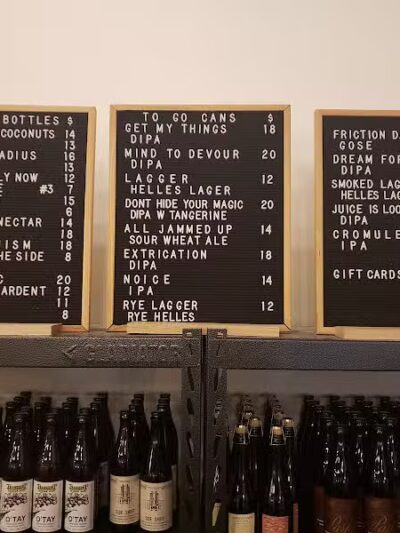 BOTTLES $
COCONUTS 14
13
ADIUS 16
13
LY NOW 12
#3 7
15
6
NECTAR 14
18
UISM 18
HE SIDE 8
20
ARDENT 12
11
8
TO GO CANS $
GET MY THINGS 18
DIPA
MIND TO DEVOUR 20
DIPA
LAGGER 12
HELLES LAGER
DONT HIDE YOUR MAGIC 20
DIPA W TANGERINE
ALL JAMMED UP 14
SOUR WHEAT ALE
EXTRICATION 18
DIPA
NOICE 14
IPA
RYE LAGGER 12
RYE HELLES
FRICTION D
GOSE
DREAM FOR
DIPA
SMOKED LAG
HELLES LAG
JUICE IS LOO
DIPA
CROMULE
IPA
GIFT CARDS
GLADIATOR
O'TAY
O'TAY
O'TAY